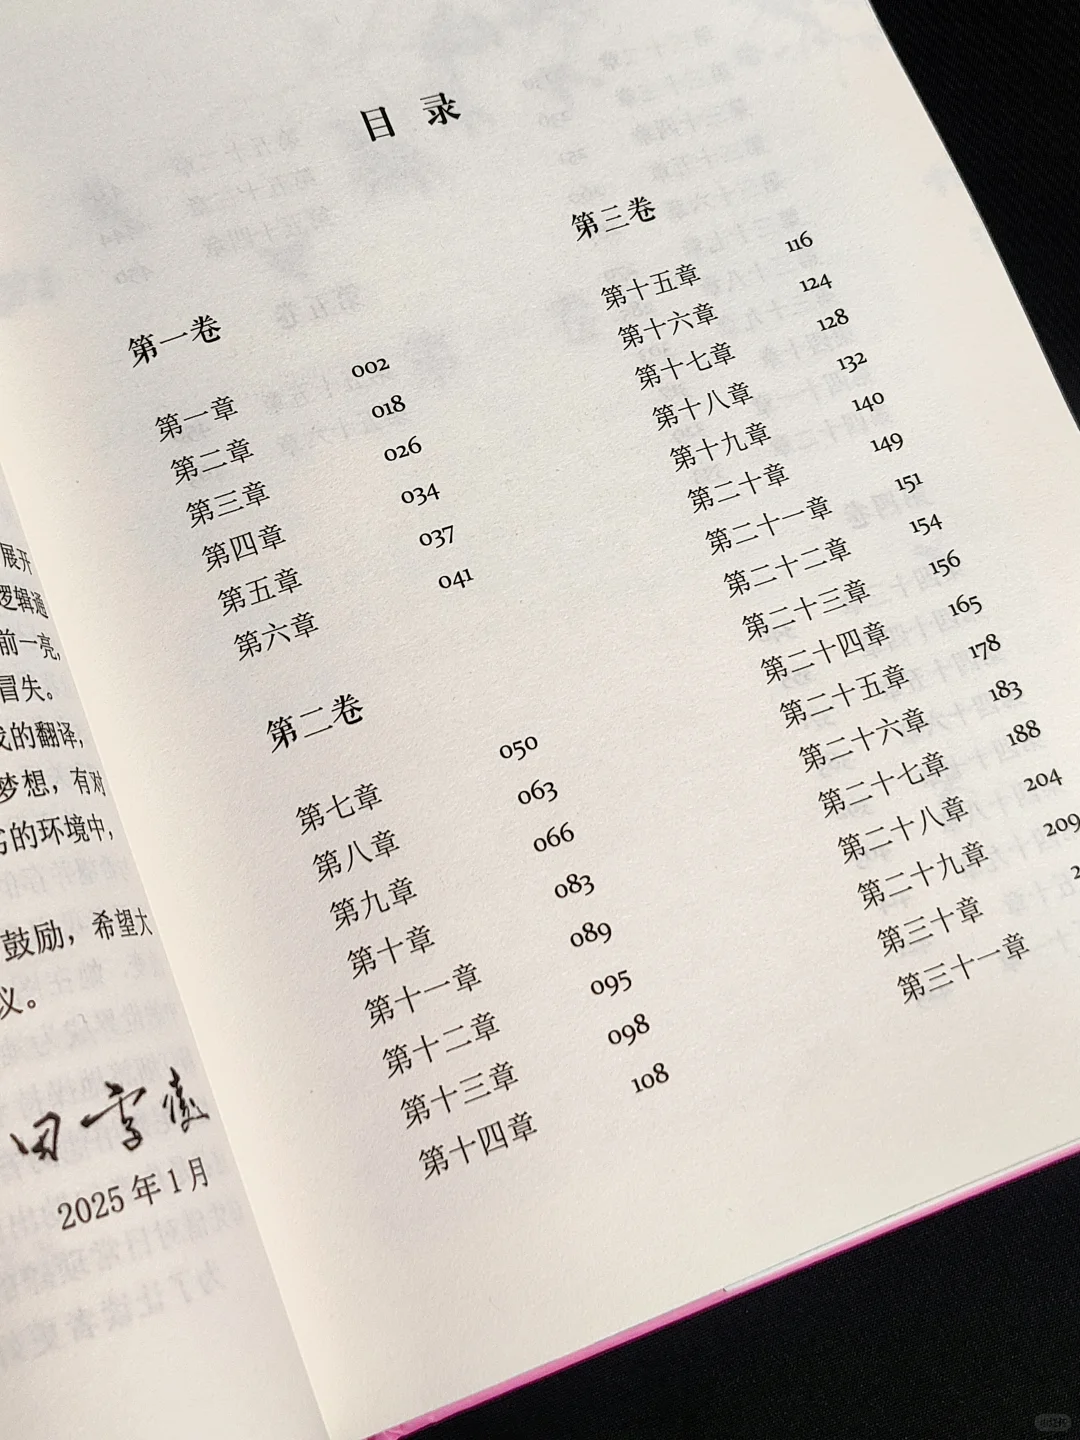 展开
逻辑通
前一亮，
冒失。
的翻译，
梦想，有对
的环境中，
鼓励，希望大
议。
2025年1月
目录
第一卷
第一章 002
第二章 018
第三章 026
第四章 034
第五章 037
第六章 041
第二卷
第七章 050
第八章 063
第九章 066
第十章 083
第十一章 089
第十二章 095
第十三章 098
第十四章 108
第三卷
第十五章 116
第十六章 124
第十七章 128
第十八章 132
第十九章 140
第二十章 149
第二十一章 151
第二十二章 154
第二十三章 156
第二十四章 165
第二十五章 178
第二十六章 183
第二十七章 188
第二十八章 204
第二十九章 209
第三十章
第三十一章